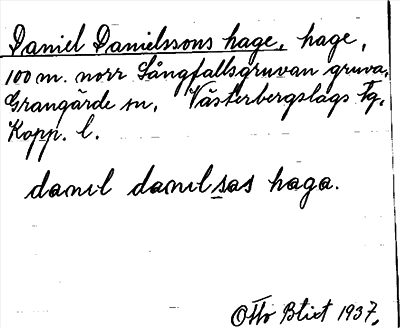 Daniel Danielssons hage, hage,
100 m. norr Långfallsgruvan gruva,
Grangärde sn, Västerbergslags Fg,
Kopp. l.
danıl danıl sas haga.
Otto Blixt 1937,